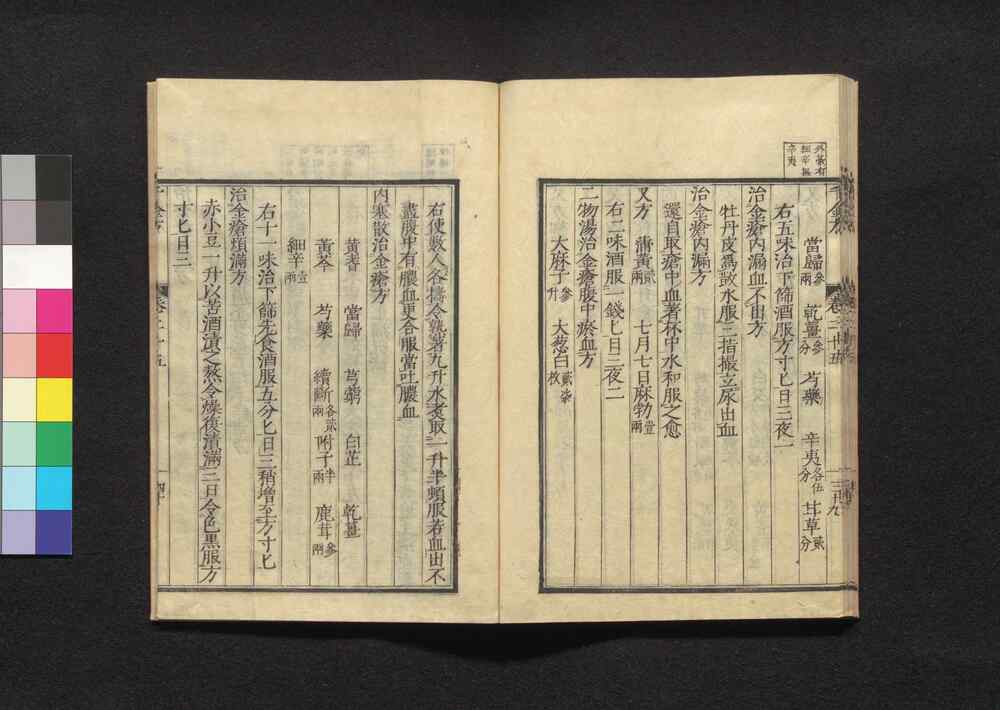 外臺有
細辛無
辛夷
當歸參兩 乾薑參分 芍藥 辛夷各伍分 甘草貳分
右五味治下篩酒服方寸匕日三夜一
治金瘡內漏血不出方
牡丹皮爲散水服三指撮立尿出血
治金瘡內漏方
還自取瘡中血著杯中水和服之愈
又方 蒲黃貳兩 七月七日麻勃壹兩
右二味酒服一錢匕日三夜二
二物湯治金瘡腹中瘀血方
大麻子參升 大葱白貳柒枚
右使數人各擣令熟著九升水煑取一升半頓服若血出不
盡腹中有膿血更合服當吐膿血
內塞散治金瘡方
黃耆 當歸 芎藭 白芷 乾薑
黃芩 芍藥 續斷各貳兩 附子半兩 鹿茸參兩
細辛壹兩
右十一味治下篩先食酒服五分匕日三稍增至方寸匕
治金瘡煩滿方
赤小豆一升以苦酒漬之熬令燥復漬滿三日令色黑服方
寸匕日三